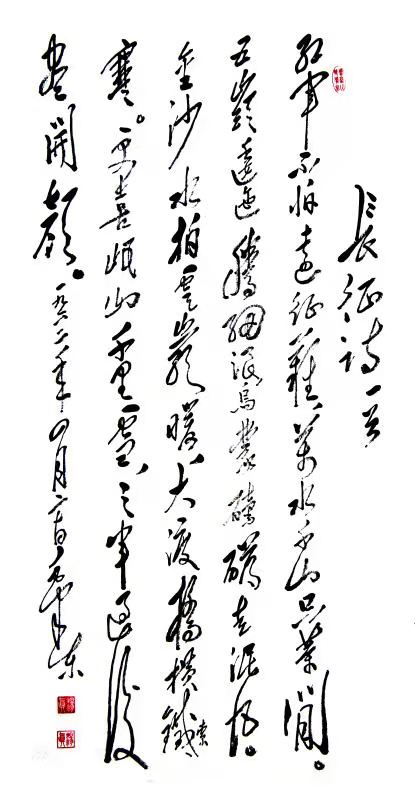 長征詩一首
紅軍不怕遠征難，萬水千山只等閒。
五嶺逶迤騰細浪烏蒙磅礴走泥丸。
金沙水拍雲崖暖，大渡橋橫鐵索
寒。更喜岷山千里雪，三軍過後
盡開顏。一九六二年四月二十日 毛澤東